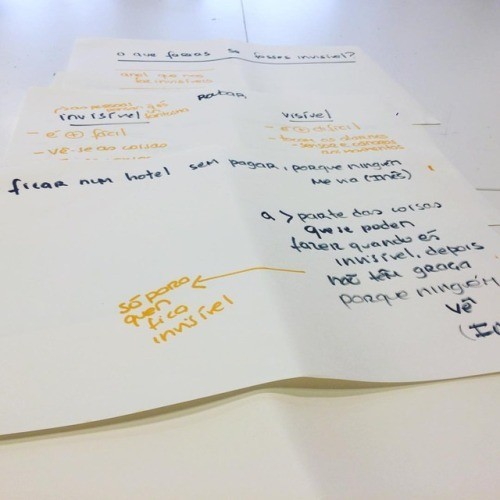 O que farias se fosses invisível?
roubar
invisível
visível
- é + fácil
- é + difícil
- vê-se as coisas
- tocam os alarmes
- sensores e câmaras
ficar num hotel sem pagar, porque ninguém
me via (Inês)
a > parte das coisas
que se podem
fazer quando és
invisível, depois
não têm graça
porque ninguém
vê
só para
quem
fica
invisível